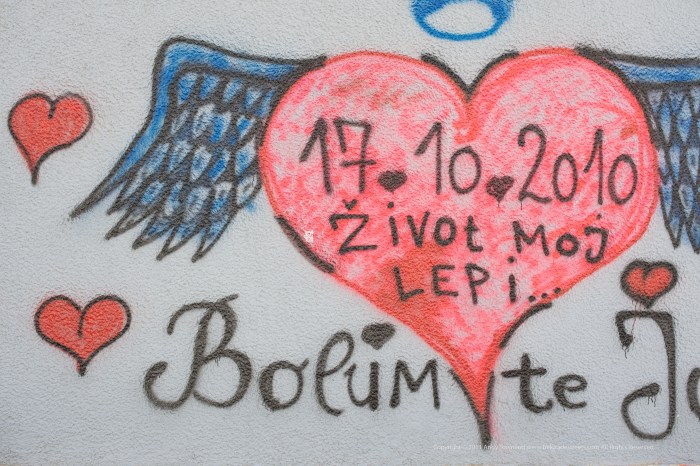 17.10.2010
Život moj
LEP i...
Bolim te